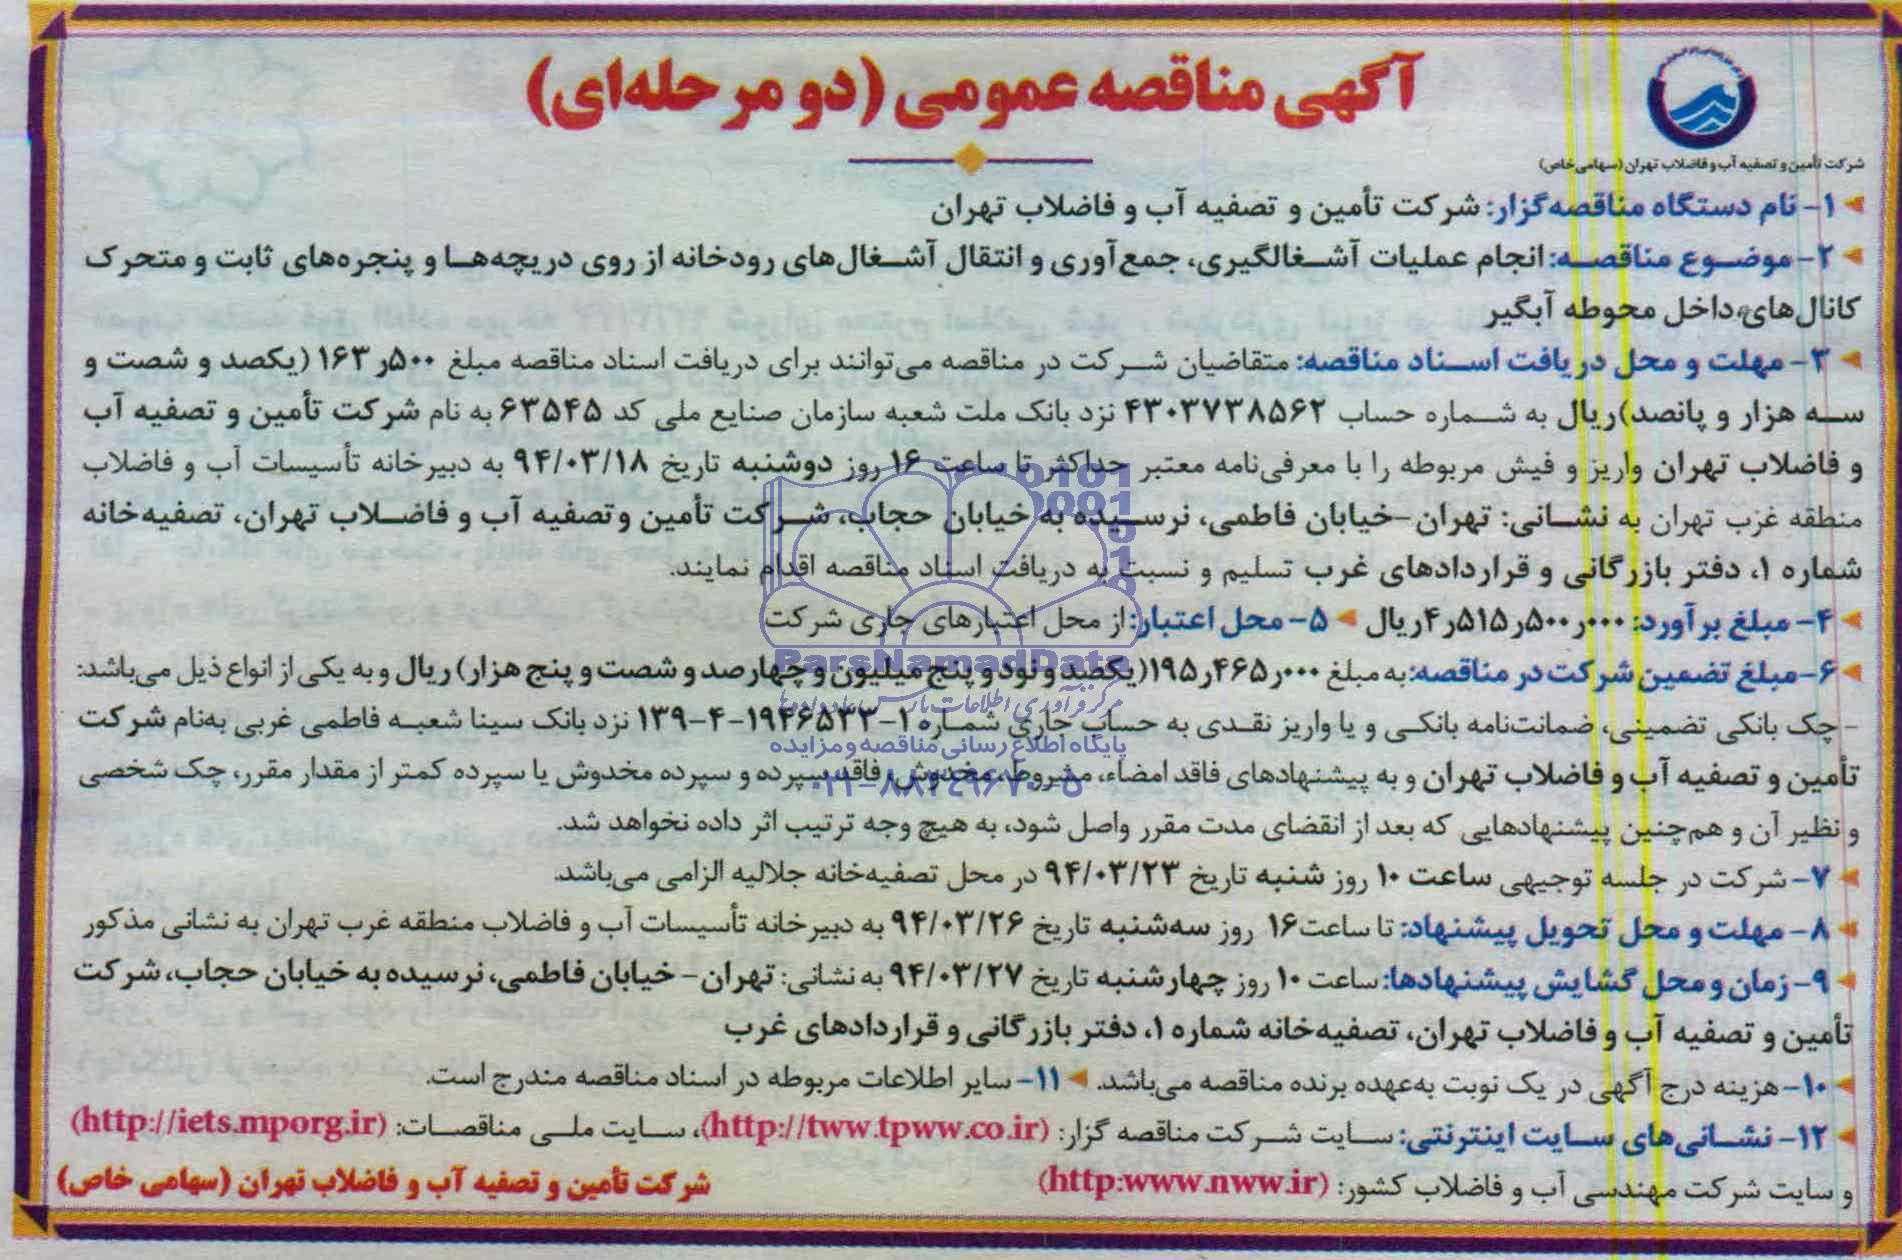 آگهی مناقصه عمومی (دو مرحله‌ای)
شرکت تأمین و تصفیه آب و فاضلاب تهران (سهامی خاص)
۱- نام دستگاه مناقصه‌گزار: شرکت تأمین و تصفیه آب و فاضلاب تهران
۲- موضوع مناقصه: انجام عملیات آشغالگیری، جمع‌آوری و انتقال آشغال‌های رودخانه از روی دریچه‌ها و پنجره‌های ثابت و متحرک
کانال‌های داخل محوطه آبگیر
۳- مهلت و محل دریافت اسناد مناقصه: متقاضیان شرکت در مناقصه می‌توانند برای دریافت اسناد مناقصه مبلغ ۱۶۳ر۵۰۰ (یکصد و شصت و
سه هزار و پانصد)ریال به شماره حساب ۴۳۰۳۷۳۸۵۶۲ نزد بانک ملت شعبه سازمان صنایع ملی کد ۶۳۵۴۵ به نام شرکت تأمین و تصفیه آب
و فاضلاب تهران واریز و فیش مربوطه را با معرفی‌نامه معتبر حداکثر تا ساعت ۱۶ روز دوشنبه تاریخ ۹۴/۰۳/۱۸ به دبیرخانه تأسیسات آب و فاضلاب
منطقه غرب تهران به نشانی: تهران-خیابان فاطمی، نرسیده به خیابان حجاب، شرکت تأمین و تصفیه آب و فاضلاب تهران، تصفیه‌خانه
شماره ۱، دفتر بازرگانی و قراردادهای غرب تسلیم و نسبت به دریافت اسناد مناقصه اقدام نمایند.
۴- مبلغ برآورد: ۴ر۵۱۵ر۵۰۰ر۰۰۰ریال ۵- محل اعتبار: از محل اعتبارهای جاری شرکت
۶-مبلغ تضمین شرکت در مناقصه: به مبلغ ۱۹۵ر۴۶۵ر۰۰۰(یکصد و نود و پنج میلیون و چهارصد و شصت و پنج هزار) ریال و به یکی از انواع ذیل می‌باشد:
- چک بانکی تضمینی، ضمانت‌نامه بانکی و یا واریز نقدی به حساب جاری شماره ۱-۱۹۴۶۵۳۳-۴-۱۳۹ نزد بانک سینا شعبه فاطمی غربی به‌نام شرکت
تأمین و تصفیه آب و فاضلاب تهران و به پیشنهادهای فاقد امضاء، مشروط، مخدوش، فاقد سپرده و سپرده مخدوش یا سپرده کمتر از مقدار مقرر، چک شخصی
و نظیر آن و هم‌چنین پیشنهادهایی که بعد از انقضای مدت مقرر واصل شود، به هیچ وجه ترتیب اثر داده نخواهد شد.
۷- شرکت در جلسه توجیهی ساعت ۱۰ روز شنبه تاریخ ۹۴/۰۳/۲۳ در محل تصفیه‌خانه جلالیه الزامی می‌باشد.
۸- مهلت و محل تحویل پیشنهاد: تا ساعت۱۶ روز سه‌شنبه تاریخ ۹۴/۰۳/۲۶ به دبیرخانه تأسیسات آب و فاضلاب منطقه غرب تهران به نشانی مذکور
۹- زمان و محل گشایش پیشنهادها: ساعت ۱۰ روز چهارشنبه تاریخ ۹۴/۰۳/۲۷ به نشانی: تهران- خیابان فاطمی، نرسیده به خیابان حجاب، شرکت
تأمین و تصفیه آب و فاضلاب تهران، تصفیه‌خانه شماره ۱، دفتر بازرگانی و قراردادهای غرب
۱۰- هزینه درج آگهی در یک نوبت به‌عهده برنده مناقصه می‌باشد. ۱۱- سایر اطلاعات مربوطه در اسناد مناقصه مندرج است.
۱۲- نشانی‌های سایت اینترنتی: سایت شرکت مناقصه گزار: (http://tww.tpww.co.ir)، سایت ملی مناقصات: (http://iets.mporg.ir)
و سایت شرکت مهندسی آب و فاضلاب کشور: (http:www.nww.ir)
شرکت تأمین و تصفیه آب و فاضلاب تهران (سهامی خاص)
ParsNamadData
مرکز فرآوری اطلاعات پارس نماد داده‌ها
پایگاه اطلاع رسانی مناقصه و مزایده
۰۲۱-۸۸۳۴۹۶۷۰-۵